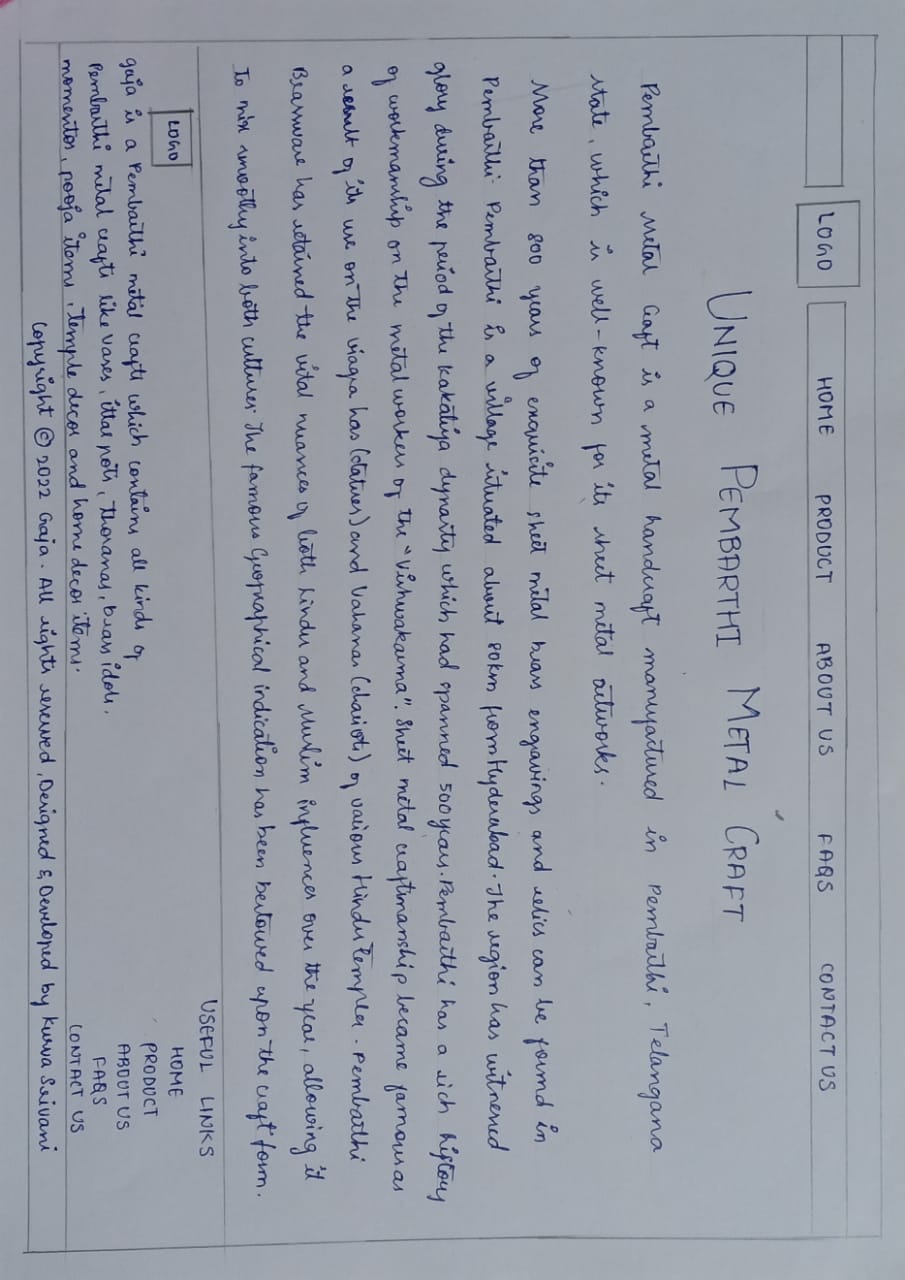 LOGO
HOME PRODUCT ABOUT US FAQS CONTACT US
UNIQUE PEMBARTHI METAL CRAFT
Pembarthi Metal Craft is a metal handcraft manufactured in Pembarthi, Telangana
state, which is well-known for its sheet metal artworks.
More than 800 years of exquisite sheet metal brass engravings and relics can be found in
Pembarthi. Pembarthi is a village situated about 80km from Hyderabad. The region has witnessed
glory during the period of the Kakatiya dynasty which had spanned 500 years. Pembarthi has a rich history
of workmanship on the metal workers of the "Vishwakarma". Sheet metal craftmanship became famous as
a result of its use on the viagra has (statues) and Vahanas (chariots) of various Hindu Temples. Pembarthi
Brassware has retained the vital nuances of both hindu and Muslim influences over the year, allowing it
To mix smoothly into both cultures. The famous Geographical indication has been bestowed upon the craft form.
LOGO
gaja is a Pembarthi metal crafts which contains all kinds of
Pembarthi metal crafts like vases, ittar pots, Thoranas, brass idols,
momentos, pooja items, temple decor and home decor items.
USEFUL LINKS
HOME
PRODUCT
ABOUT US
FAQS
CONTACT US
Copyright © 2022 Gaja. All rights reserved, Designed & Developed by Kurva Srivani